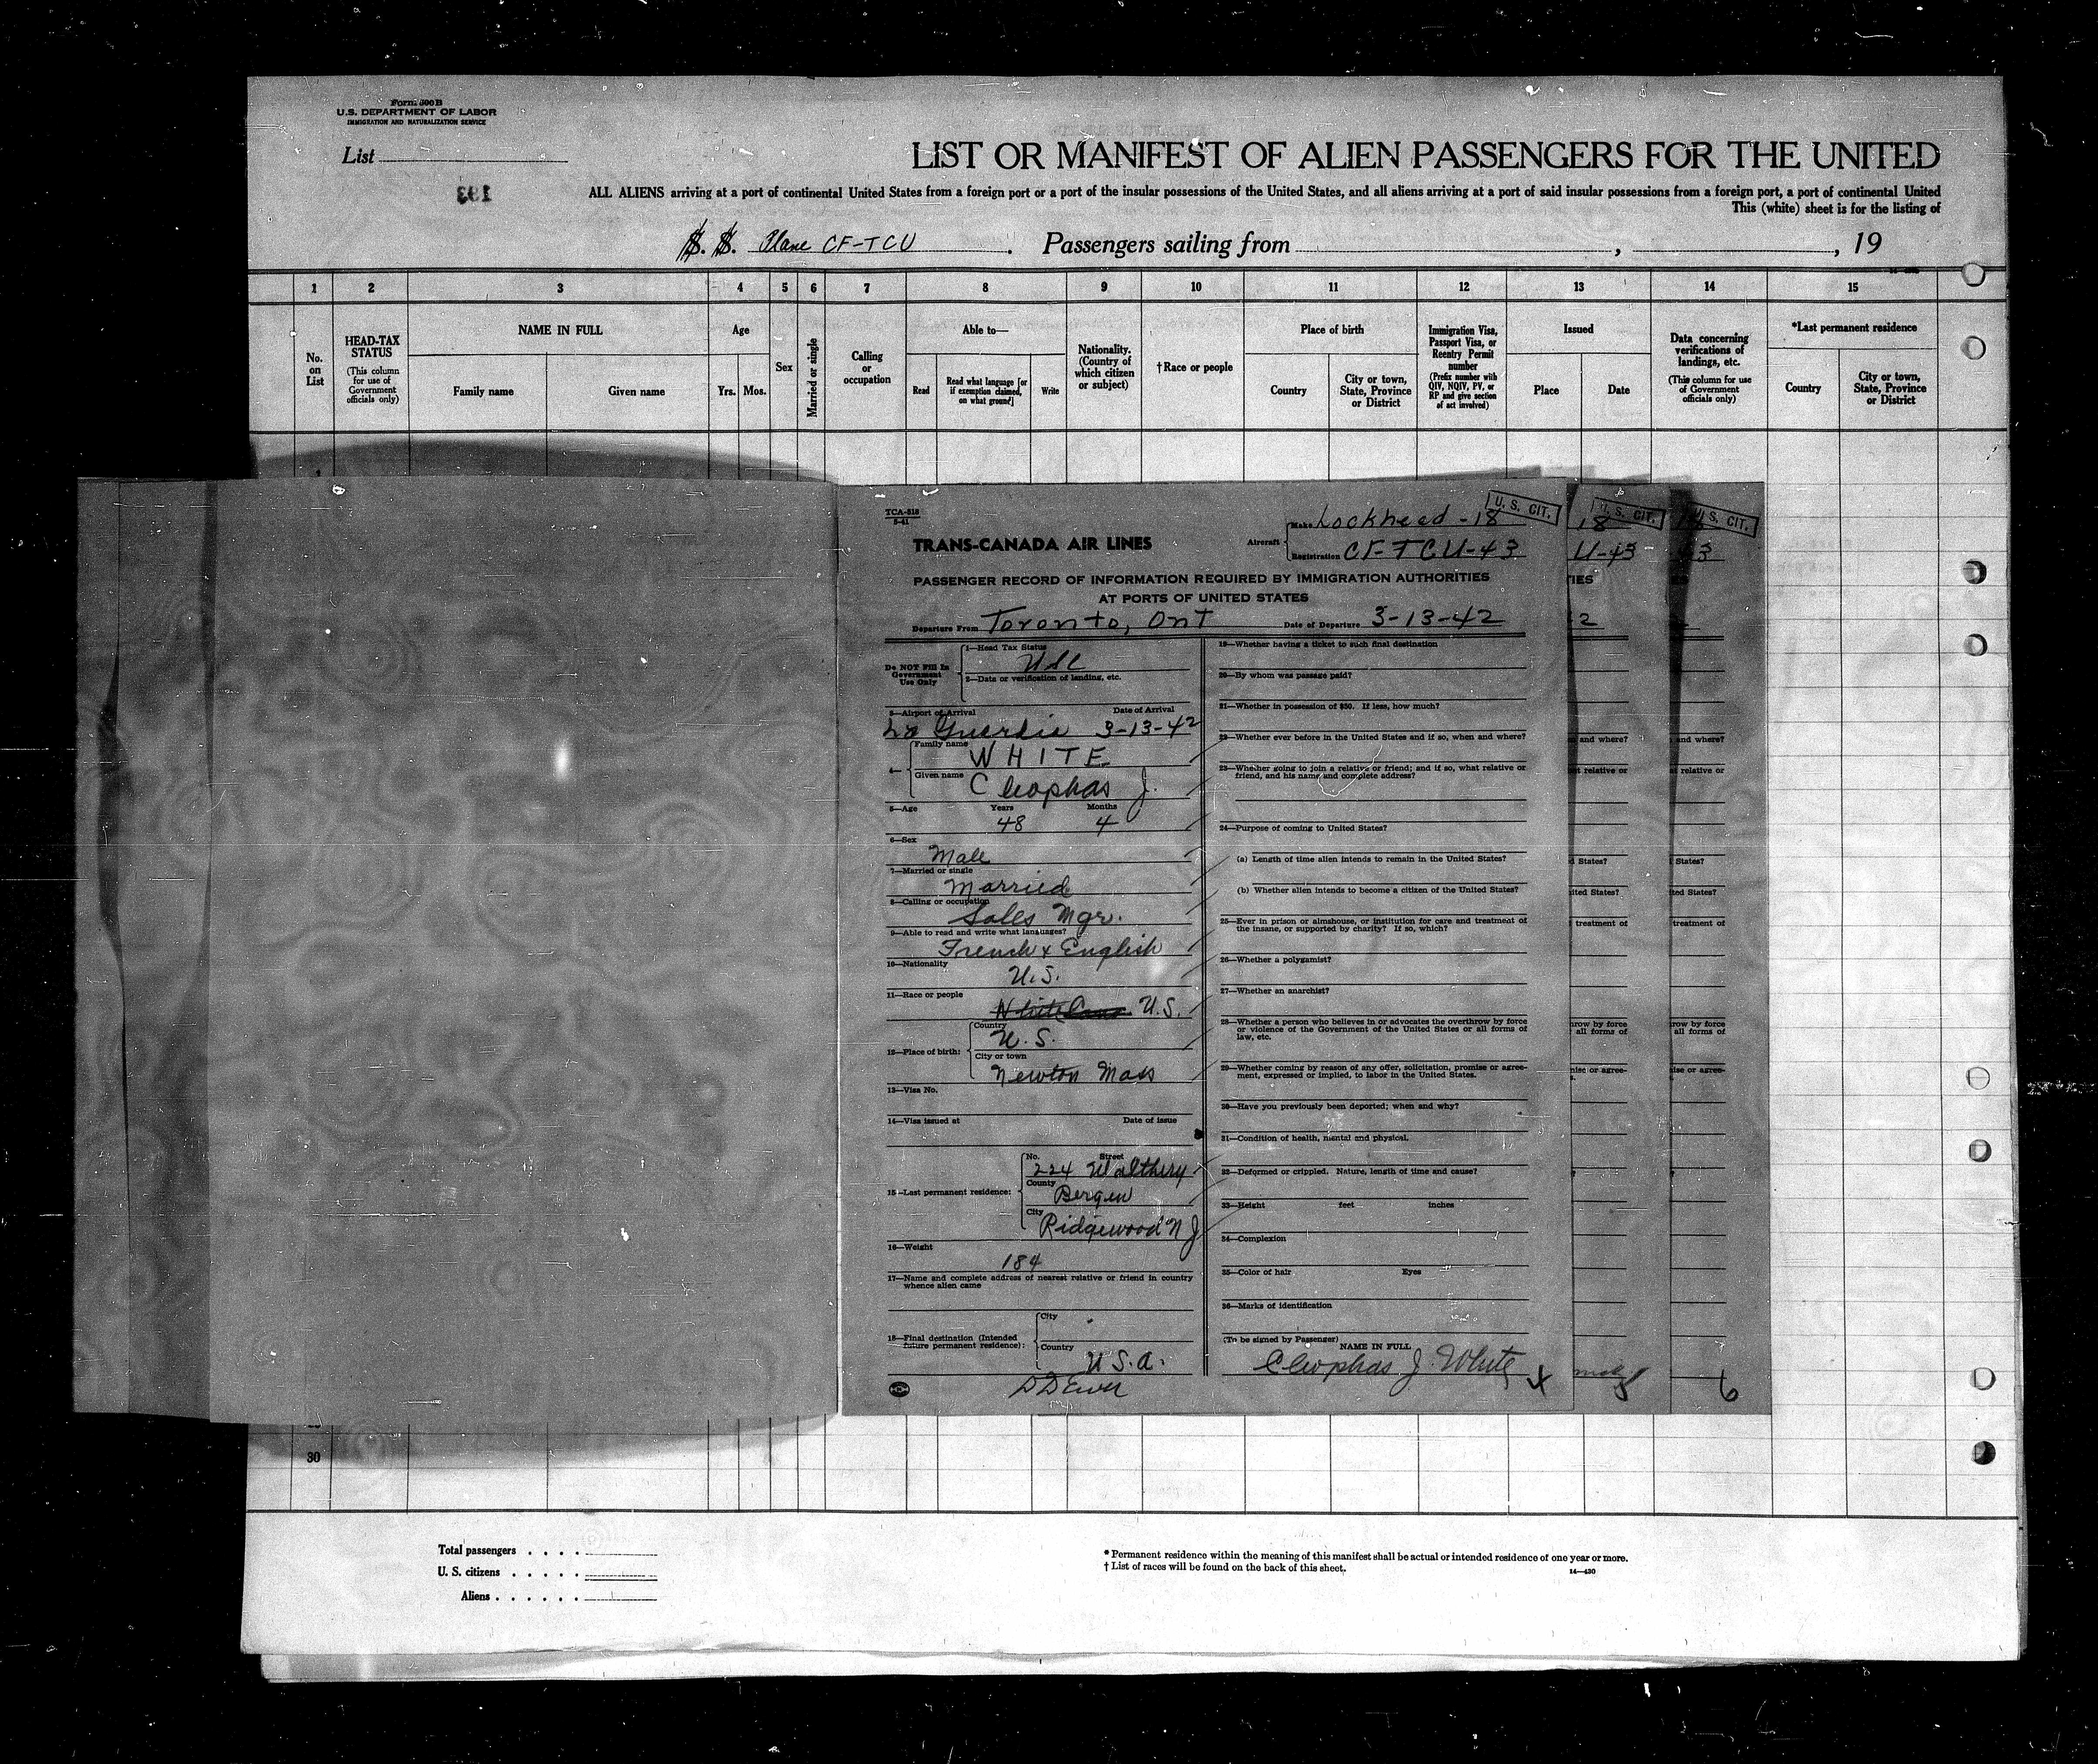 Form 500 B
U.S. DEPARTMENT OF LABOR
IMMIGRATION AND NATURALIZATION SERVICE
List
193
LIST OR MANIFEST OF ALIEN PASSENGERS FOR THE UNITED
ALL ALIENS arriving at a port of continental United States from a foreign port or a port of the insular possessions of the United States, and all aliens arriving at a port of said insular possessions from a foreign port, a port of continental United
This (white) sheet is for the listing of
S. S. Plane CF-TCU . Passengers sailing from , , 19
1 2 3 4 5 6 7 8 9 10 11 12 13 14 15
No. on List
HEAD-TAX STATUS
(This column for use of Government officials only)
NAME IN FULL
Family name Given name
Age
Yrs. Mos.
Sex
Married or single
Calling or occupation
Able to—
Read
Read what language [or if exemption claimed, on what ground]
Write
Nationality. (Country of which citizen or subject)
†Race or people
Place of birth
Country
City or town, State, Province or District
Immigration Visa, Passport Visa, or Reentry Permit number
(Prefix number with QIV, NQIV, PV, or RP and give section of act involved)
Issued
Place Date
Data concerning verifications of landings, etc.
(This column for use of Government officials only)
*Last permanent residence
Country
City or town, State, Province or District
TCA-818
5-41
U. S. CIT.
TRANS-CANADA AIR LINES
Aircraft
Make Lockheed - 18
Registration CF-TCU-43
PASSENGER RECORD OF INFORMATION REQUIRED BY IMMIGRATION AUTHORITIES
AT PORTS OF UNITED STATES
Departure From Toronto, Ont Date of Departure 3-13-42
Do NOT Fill In
Government
Use Only
1—Head Tax Status
USC
2—Date or verification of landing, etc.
3—Airport of Arrival Date of Arrival
La Guardia 3-13-42
4—
Family name
WHITE
Given name
Cleophas J.
5—Age Years Months
48 4
6—Sex
Male
7—Married or single
Married
8—Calling or occupation
Sales Mgr.
9—Able to read and write what languages?
French & English
10—Nationality
U.S.
11—Race or people
U.S.
12—Place of birth:
Country
U.S.
City or town
Newton Mass
13—Visa No.
14—Visa issued at Date of issue
15—Last permanent residence:
No. Street
224
County
Bergen
City
Ridgewood N J
16—Weight
184
17—Name and complete address of nearest relative or friend in country
whence alien came
18—Final destination (Intended
future permanent residence):
City
Country
U.S.A.
19—Whether having a ticket to such final destination
20—By whom was passage paid?
21—Whether in possession of $50. If less, how much?
22—Whether ever before in the United States and if so, when and where?
23—Whether going to join a relative or friend; and if so, what relative or
friend, and his name and complete address?
24—Purpose of coming to United States?
(a) Length of time alien intends to remain in the United States?
(b) Whether alien intends to become a citizen of the United States?
25—Ever in prison or almshouse, or institution for care and treatment of
the insane, or supported by charity? If so, which?
26—Whether a polygamist?
27—Whether an anarchist?
28—Whether a person who believes in or advocates the overthrow by force
or violence of the Government of the United States or all forms of
law, etc.
29—Whether coming by reason of any offer, solicitation, promise or agree-
ment, expressed or implied, to labor in the United States.
30—Have you previously been deported; when and why?
31—Condition of health, mental and physical.
32—Deformed or crippled. Nature, length of time and cause?
33—Height feet inches
34—Complexion
35—Color of hair Eyes
36—Marks of identification
(To be signed by Passenger)
NAME IN FULL
Cleophas J. White
U. S. CIT.
18
U-43
IES
2
and where?
relative or
d States?
ited States?
treatment of
row by force
all forms of
nise or agree-
U. S. CIT.
43
and where?
relative or
States?
ted States?
treatment of
row by force
all forms of
ise or agree-
6
30
Total passengers
U. S. citizens
Aliens
* Permanent residence within the meaning of this manifest shall be actual or intended residence of one year or more.
† List of races will be found on the back of this sheet.
14—430